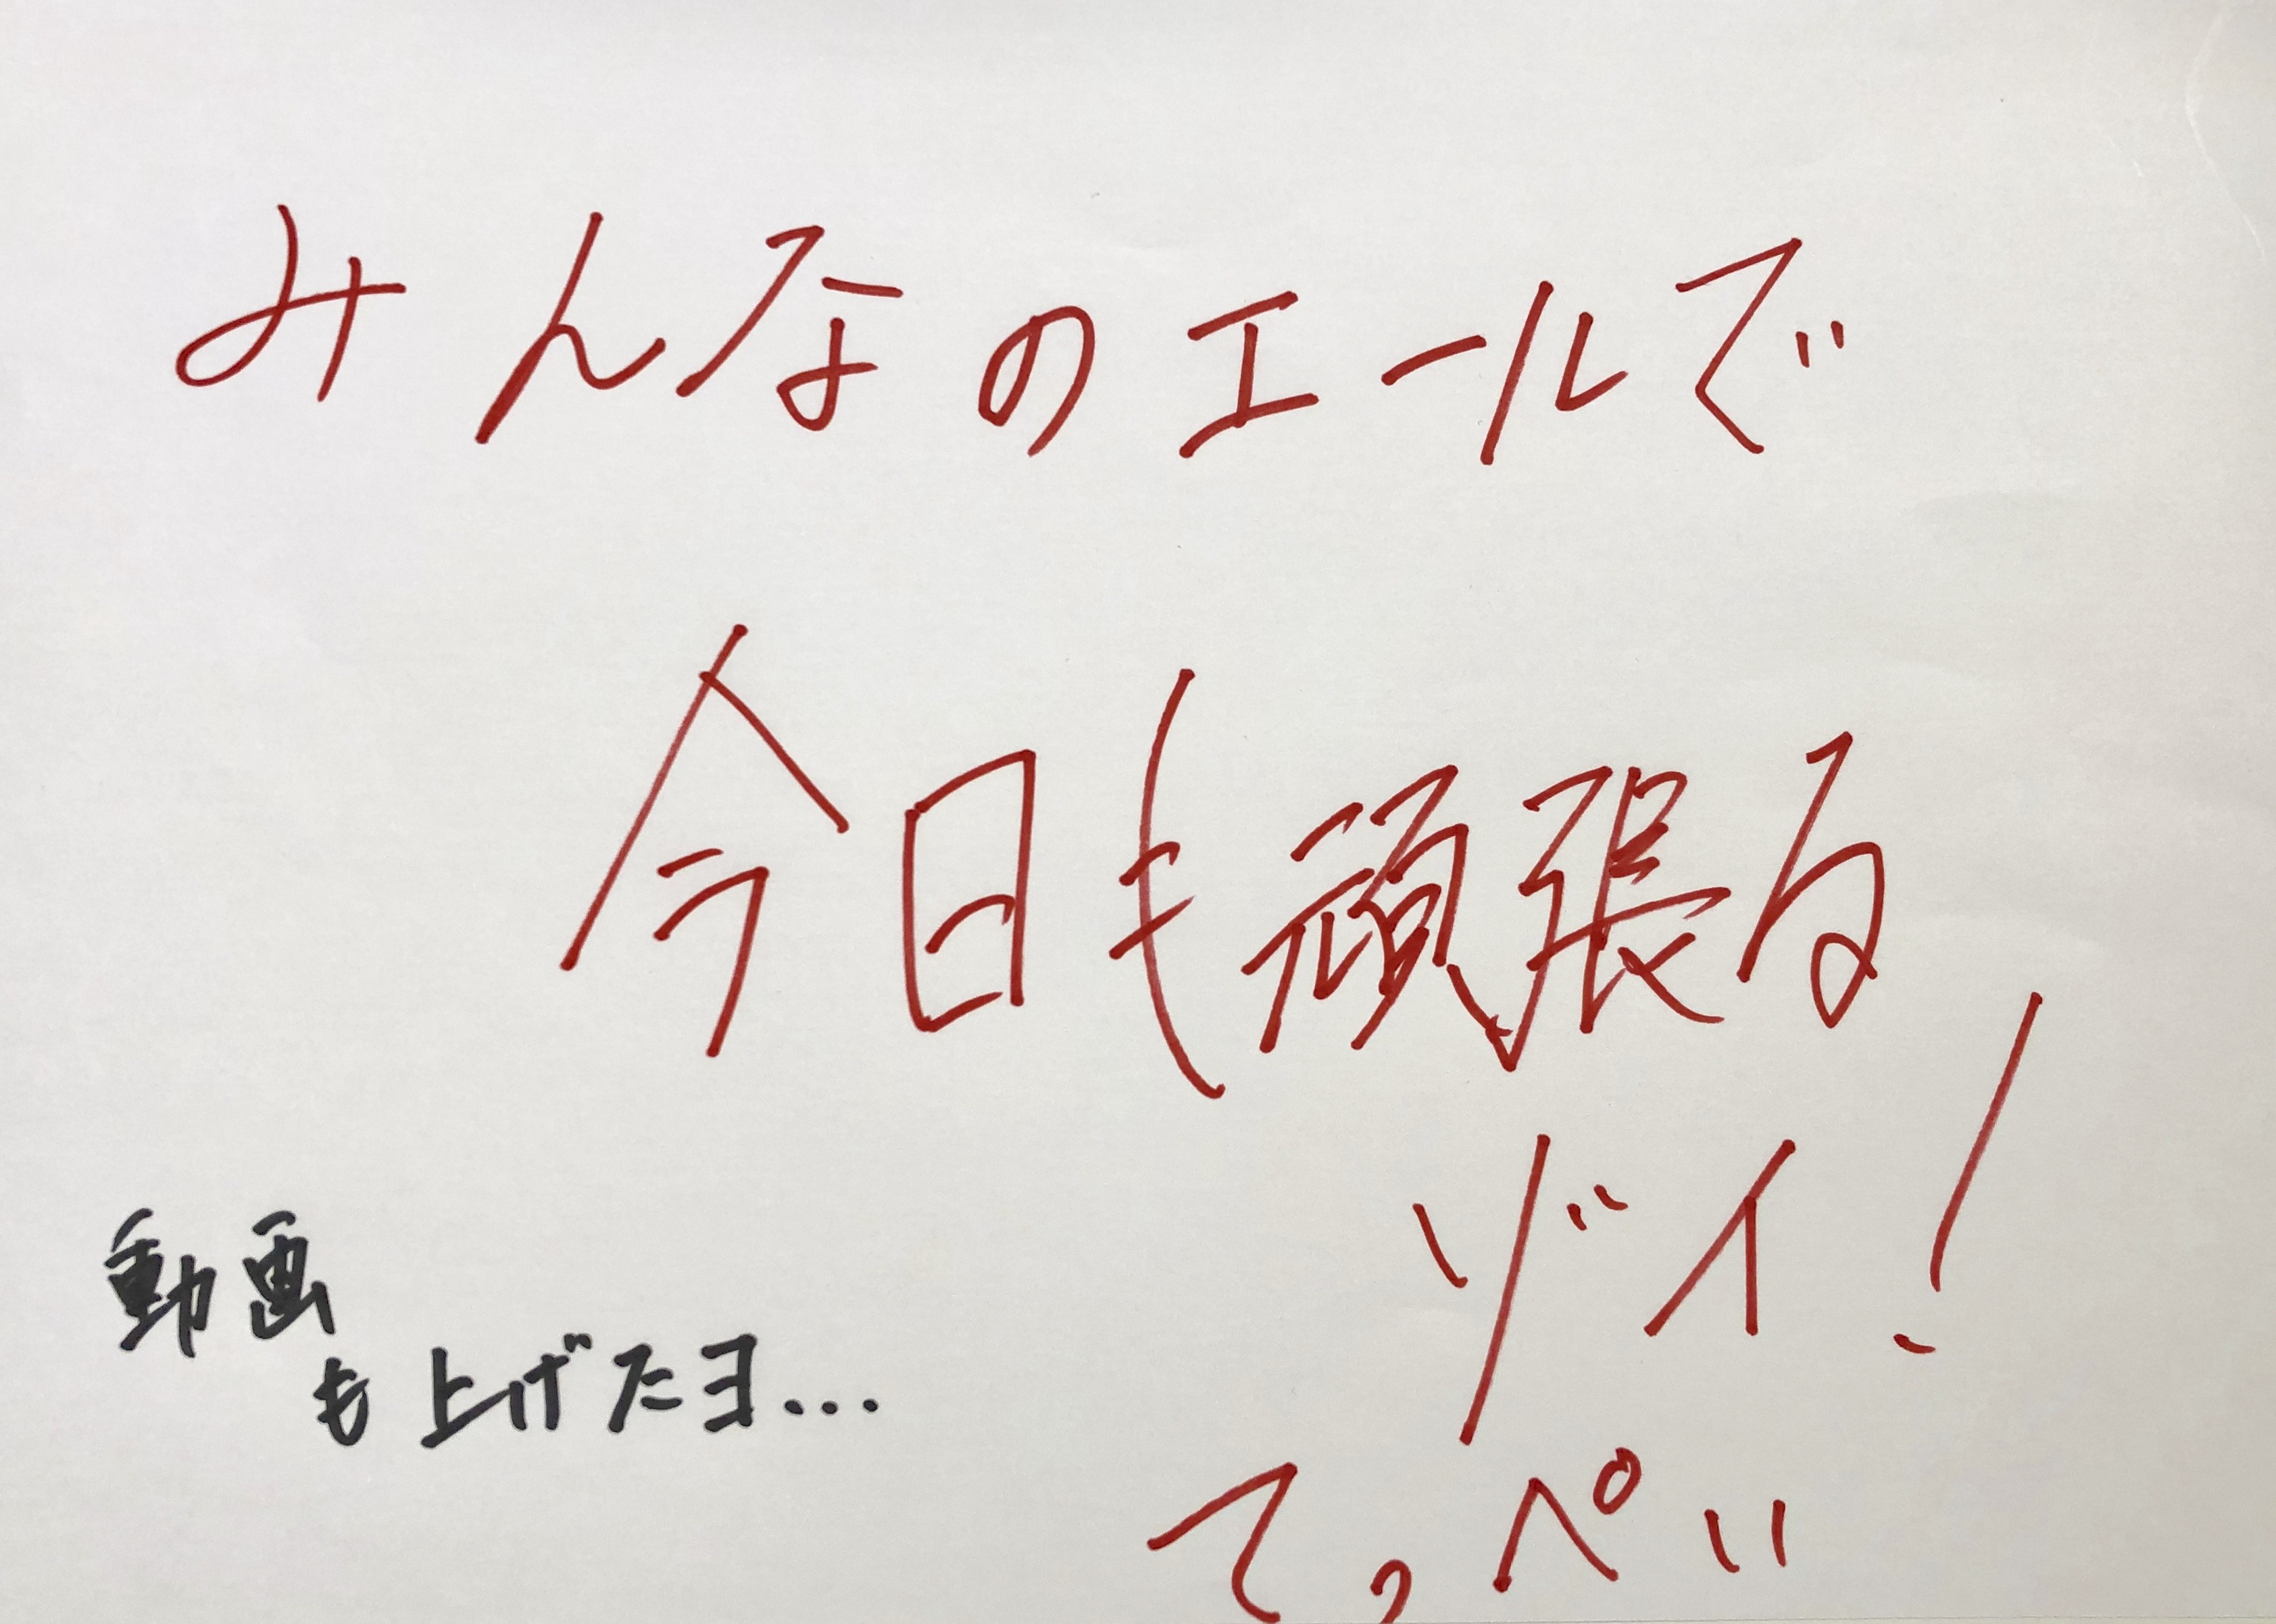 みんなのエールで
今日も頑張る
ゾイ!
動画
も上げたヨ...
てっぺい